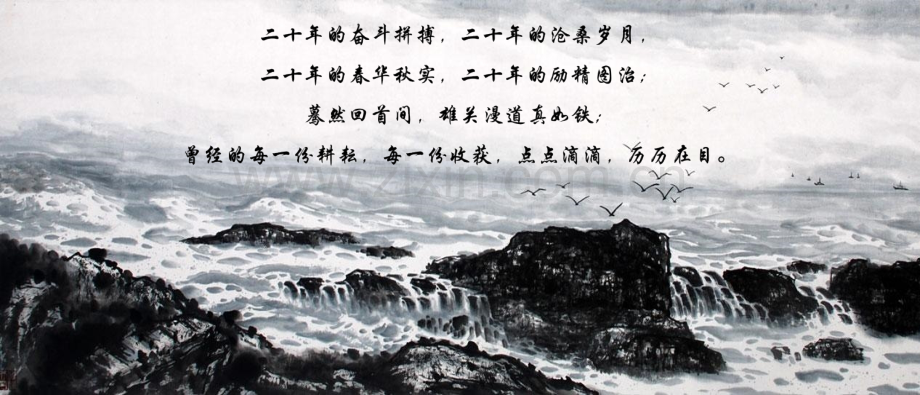 二十年的奋斗拼搏，二十年的沧桑岁月，
二十年的春华秋实，二十年的励精图治；
蓦然回首间，雄关漫道真如铁；
曾经的每一份耕耘，每一份收获，点点滴滴，历历在目。
www.zixin.com.cn